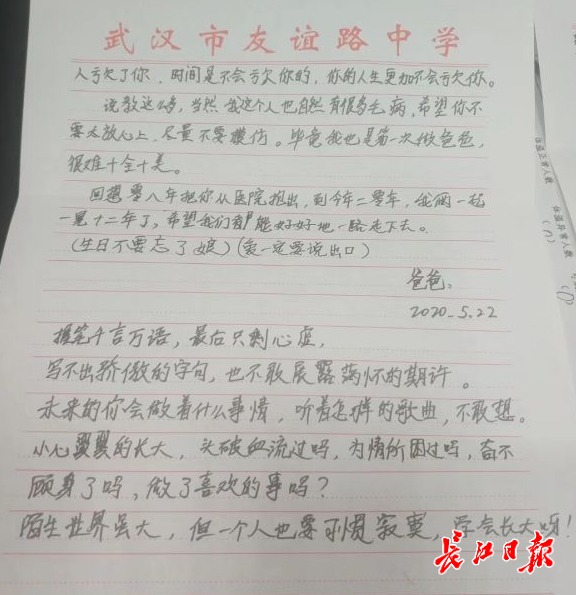 武汉市友谊路中学
人亏欠了你,时间是不会亏欠你的,你的人生更加不会亏欠你。
说教这么多,当然我这个人也自然有很多毛病,希望你不
要太放心上,尽量不要模仿。毕竟我也是第一次做爸爸,
很难十全十美。
回想零八年把你从医院抱出,到今年二零年,我俩一起
一晃十二年了,希望我们都能好好地一路走下去。
(生日不要忘了娘)(爱一定要说出口)
爸爸。
2020.5.22
提笔千言万语,最后只剩心虚,
写不出骄傲的字句,也不敢展露满怀的期许。
未来的你会做着什么事情,听着怎样的歌曲,不敢想。
小心翼翼的长大,头破血流过吗,为情所困过吗,奋不
顾身了吗,做了喜欢的事吗?
陌生世界虽大,但一个人也要习惯寂寞,学会长大呀!
长江日报